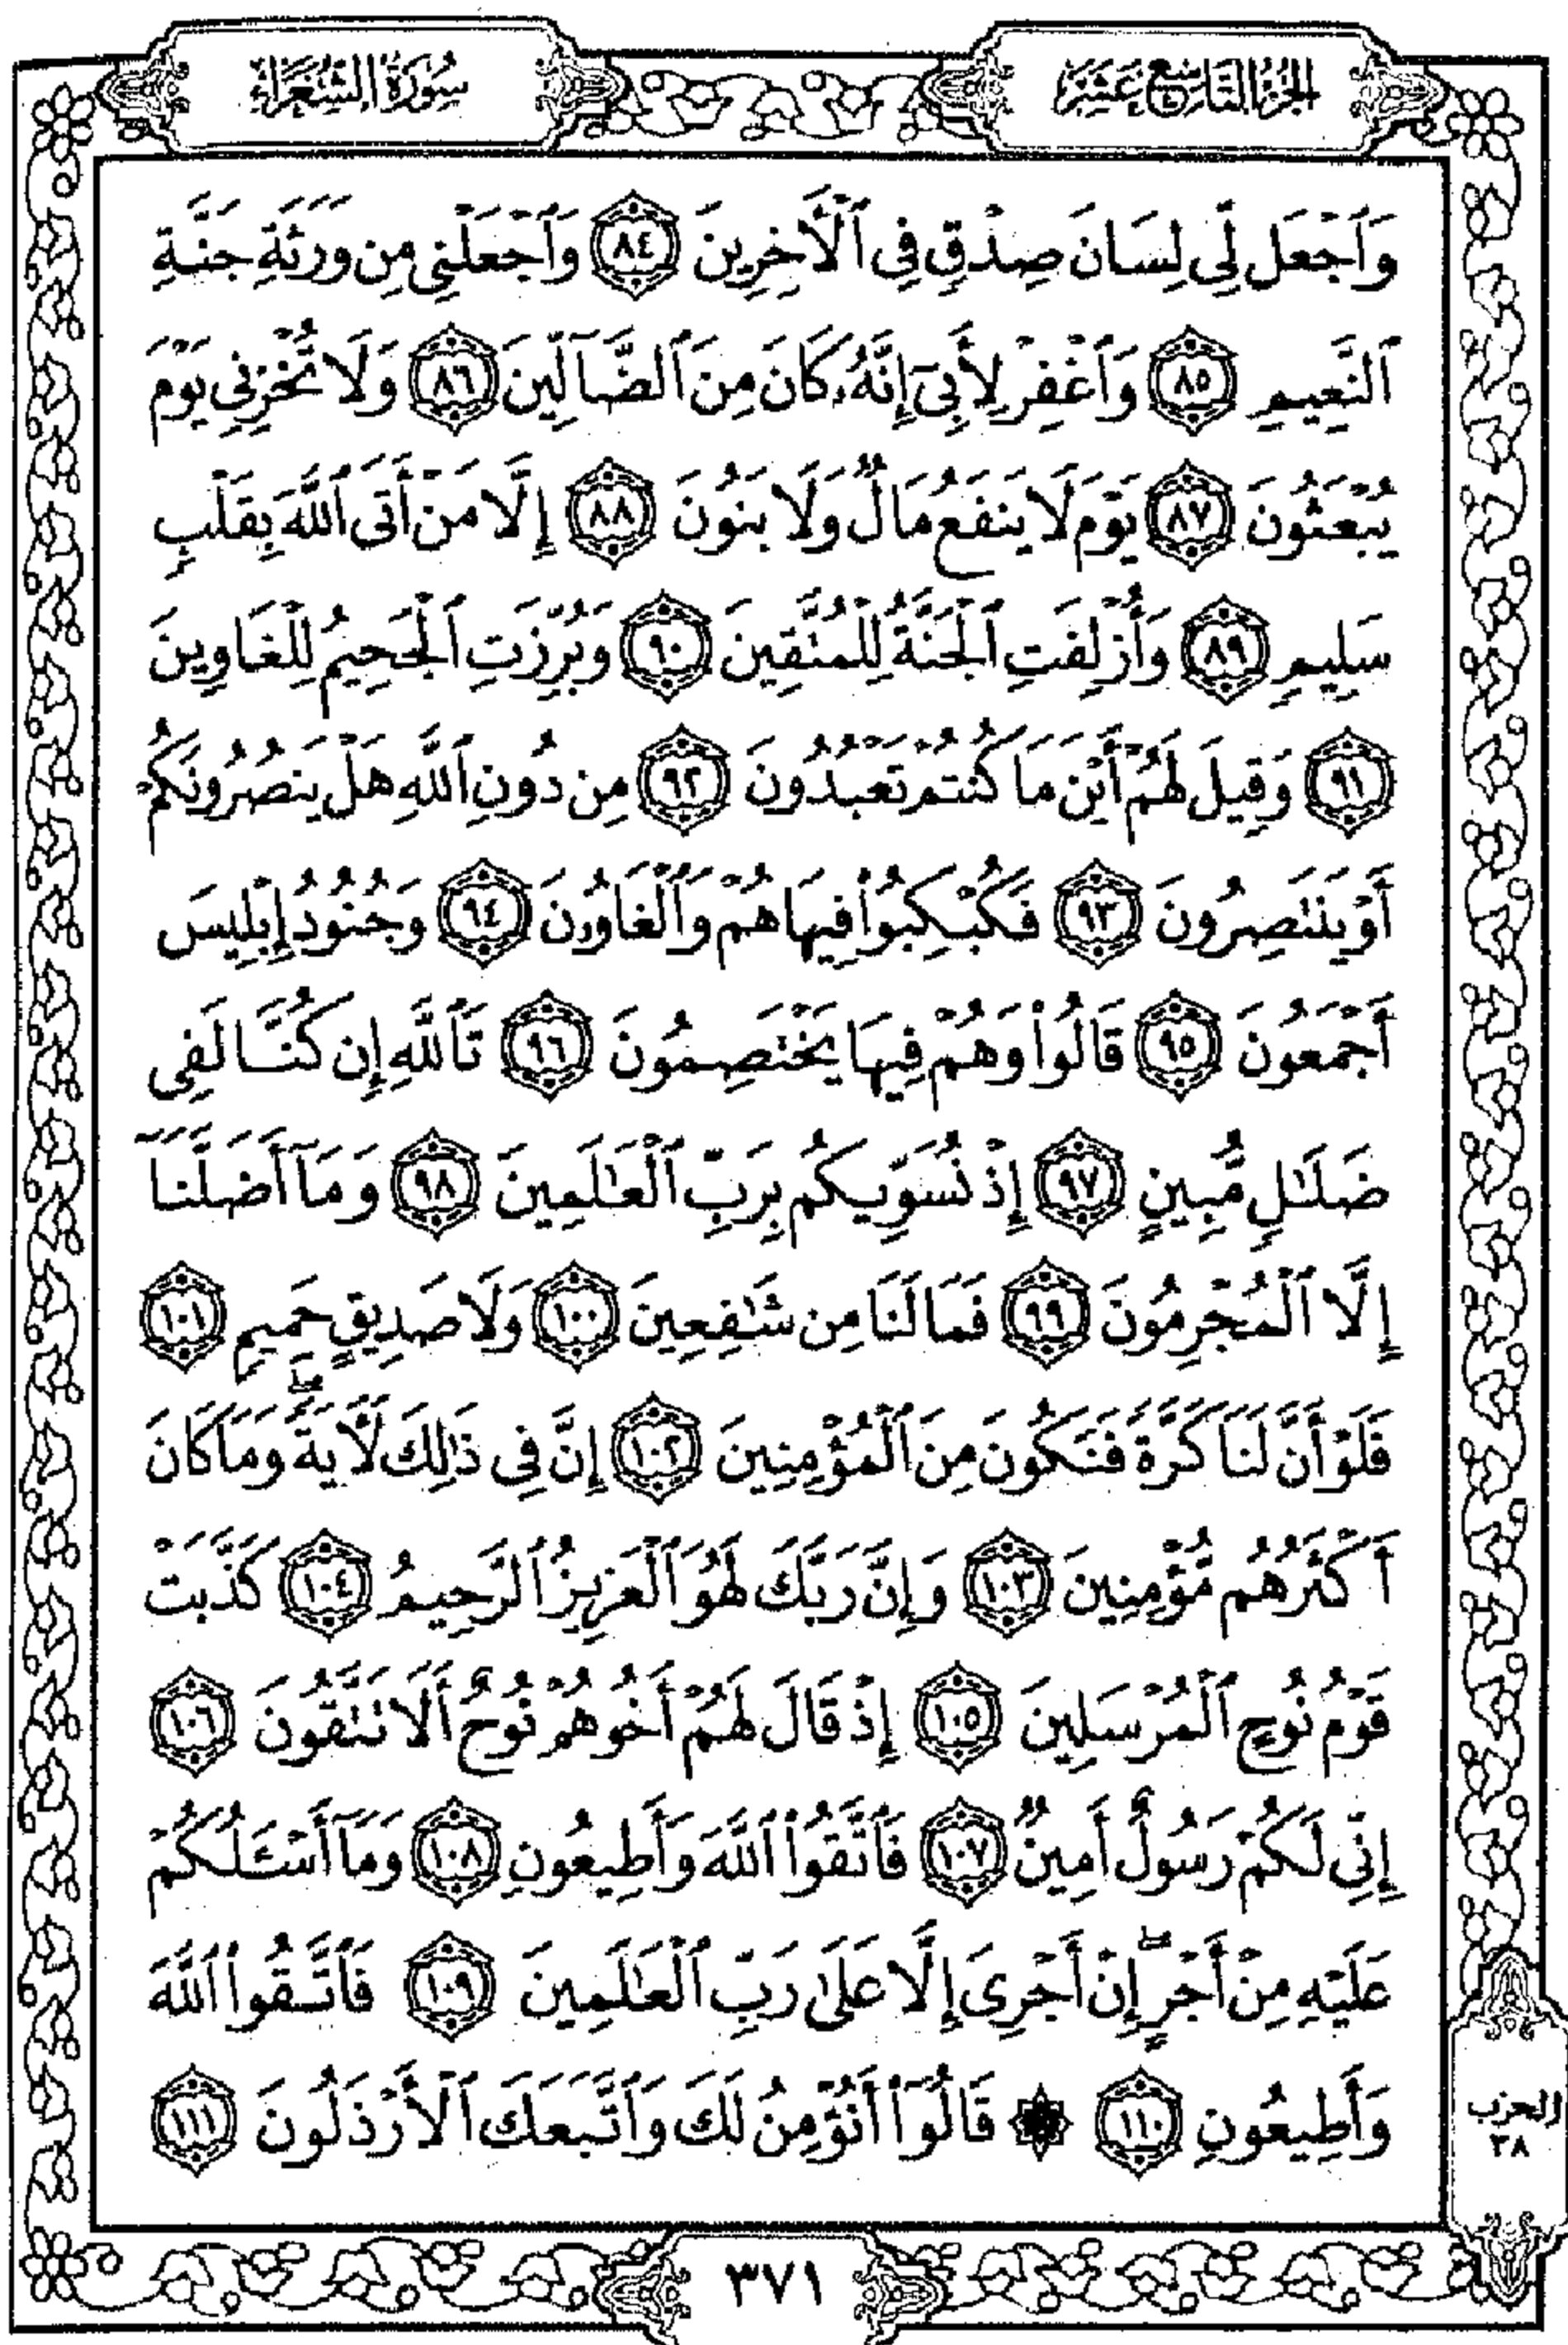 الجزء التاسع عشر
سورة الشعراء
وَٱجْعَل لِّى لِسَانَ صِدْقٍ فِى ٱلْأَخِرِينَ ٨٤ وَٱجْعَلْنِى مِن وَرَثَةِ جَنَّةِ
ٱلنَّعِيمِ ٨٥ وَٱغْفِرْ لِأَبِىٓ إِنَّهُۥ كَانَ مِنَ ٱلضَّآلِّينَ ٨٦ وَلَا تُخْزِنِى يَوْمَ
يُبْعَثُونَ ٨٧ يَوْمَ لَا يَنفَعُ مَالٌ وَلَا بَنُونَ ٨٨ إِلَّا مَنْ أَتَى ٱللَّهَ بِقَلْبٍ
سَلِيمٍ ٨٩ وَأُزْلِفَتِ ٱلْجَنَّةُ لِلْمُتَّقِينَ ٩٠ وَبُرِّزَتِ ٱلْجَحِيمُ لِلْغَاوِينَ
٩١ وَقِيلَ لَهُمْ أَيْنَ مَا كُنتُمْ تَعْبُدُونَ ٩٢ مِن دُونِ ٱللَّهِ هَلْ يَنصُرُونَكُمْ
أَوْ يَنتَصِرُونَ ٩٣ فَكُبْكِبُوا۟ فِيهَا هُمْ وَٱلْغَاوُۥنَ ٩٤ وَجُنُودُ إِبْلِيسَ
أَجْمَعُونَ ٩٥ قَالُوا۟ وَهُمْ فِيهَا يَخْتَصِمُونَ ٩٦ تَٱللَّهِ إِن كُنَّا لَفِى
ضَلَٰلٍ مُّبِينٍ ٩٧ إِذْ نُسَوِّيكُم بِرَبِّ ٱلْعَٰلَمِينَ ٩٨ وَمَآ أَضَلَّنَآ
إِلَّا ٱلْمُجْرِمُونَ ٩٩ فَمَا لَنَا مِن شَٰفِعِينَ ١٠٠ وَلَا صَدِيقٍ حَمِيمٍ ١٠١
فَلَوْ أَنَّ لَنَا كَرَّةً فَنَكُونَ مِنَ ٱلْمُؤْمِنِينَ ١٠٢ إِنَّ فِى ذَٰلِكَ لَأَيَةً ۖ وَمَا كَانَ
أَكْثَرُهُم مُّؤْمِنِينَ ١٠٣ وَإِنَّ رَبَّكَ لَهُوَ ٱلْعَزِيزُ ٱلرَّحِيمُ ١٠٤ كَذَّبَتْ
قَوْمُ نُوحٍ ٱلْمُرْسَلِينَ ١٠٥ إِذْ قَالَ لَهُمْ أَخُوهُمْ نُوحٌ أَلَا تَتَّقُونَ ١٠٦
إِنِّى لَكُمْ رَسُولٌ أَمِينٌ ١٠٧ فَٱتَّقُوا۟ ٱللَّهَ وَأَطِيعُونِ ١٠٨ وَمَآ أَسْـَٔلُكُمْ
عَلَيْهِ مِنْ أَجْرٍ ۖ إِنْ أَجْرِىَ إِلَّا عَلَىٰ رَبِّ ٱلْعَٰلَمِينَ ١٠٩ فَٱتَّقُوا۟ ٱللَّهَ
وَأَطِيعُونِ ١١٠ ۞ قَالُوٓا۟ أَنُؤْمِنُ لَكَ وَٱتَّبَعَكَ ٱلْأَرْذَلُونَ ١١١
الحزب
٣٨
٣٧١